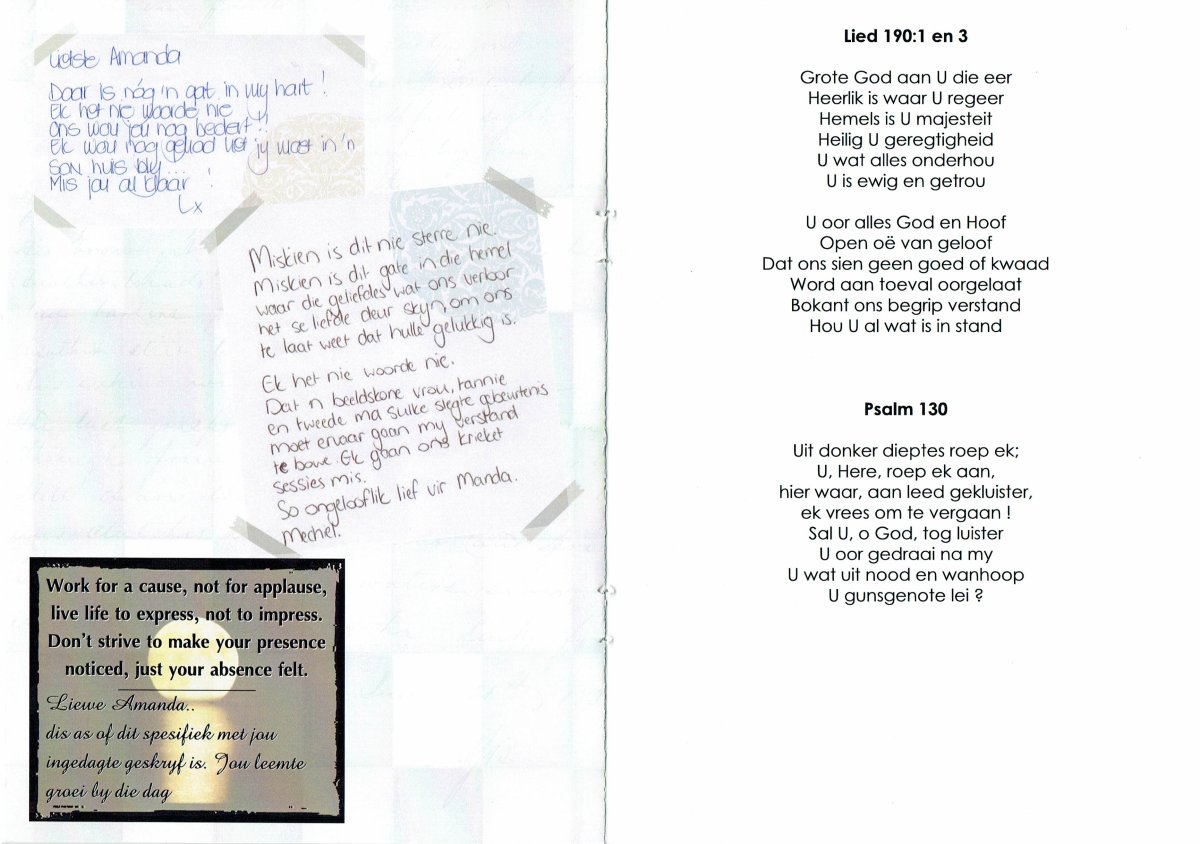 Liefste Amanda
Daar is nóg 'n gat in my hart!
Ek het nie woorde nie
Ons wou jou nog bederf!!
Ek wou nog gehad het jy moet in 'n
Son huis bly...
Mis jou al klaar
Lx
Miskien is dit nie sterre nie.
Miskien is dit gate in die hemel
waar die geliefdes wat ons verloor
het se liefde deur skyn, om ons
te laat weet dat hulle gelukkig is.
Ek het nie woorde nie.
Dat 'n beeldskone vrou, tannie
en tweede ma sulke slegte gebeurtenis
moet ervaar gaan my verstand
te bowe. Ek gaan ons krieket
sessies mis.
So ongelooflik lief vir Manda.
Mechel.
Work for a cause, not for applause,
live life to express, not to impress.
Don't strive to make your presence
noticed, just your absence felt.
Liewe Amanda..
dis as of dit spesifiek met jou
ingedagte geskryf is. Jou leemte
groei by die dag
Lied 190:1 en 3
Grote God aan U die eer
Heerlik is waar U regeer
Hemels is U majesteit
Heilig U geregtigheid
U wat alles onderhou
U is ewig en getrou
U oor alles God en Hoof
Open oë van geloof
Dat ons sien geen goed of kwaad
Word aan toeval oorgelaat
Bokant ons begrip verstand
Hou U al wat is in stand
Psalm 130
Uit donker dieptes roep ek;
U, Here, roep ek aan,
hier waar, aan leed gekluister,
ek vrees om te vergaan !
Sal U, o God, tog luister
U oor gedraai na my
U wat uit nood en wanhoop
U gunsgenote lei ?